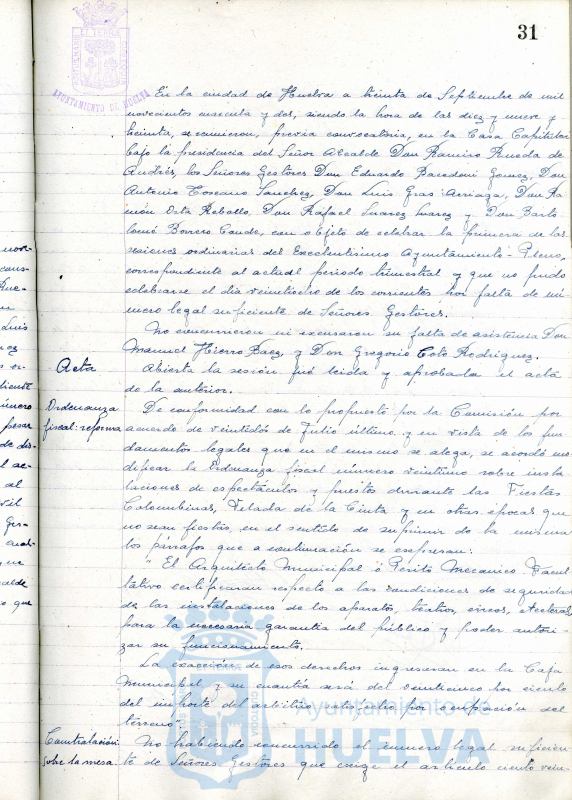 31
AYUNTAMIENTO DE HUELVA
En la ciudad de Huelva a treinta de Septiembre de mil
novecientos cuarenta y dos, siendo la hora de las diez y nueve y
treinta, se reunieron, previa convocatoria, en la Casa Capitular
bajo la presidencia del Señor Alcalde Don Ramiro Rueda de
Andrés, los Señores Gestores Don Eduardo Bacedoni Gomez, Don
Antonio Toscano Sanchez, Don Luis Gras Arriaza, Don Ra
món Orta Rebollo, Don Rafael Suarez Suarez y Don Barto
lomé Borrero Conde, con objeto de celebrar la primera de las
sesiones ordinarias del Excelentísimo Ayuntamiento-Pleno,
correspondiente al actual periodo trimestral y que no pudo
celebrarse el dia veintiocho de los corrientes por falta de nú
mero legal suficiente de Señores Gestores.
No concurrieron ni excusaron su falta de asistencia Don
Manuel Hierro Baez, y Don Gregorio Toto Rodriguez.
Acta
Abierta la sesión fué leida y aprobada el acta
de la anterior.
Ordenanza
fiscal: reforma
De conformidad con lo propuesto por la Comisión por
acuerdo de veintidós de Julio último y en vista de los fun
damentos legales que en el mismo se alega, se acordó mo
dificar la Ordenanza fiscal número veintiuno sobre insta
laciones de espectáculos y puestos durante las Fiestas
Colombinas, Velada de la Cinta y en otras épocas que
no sean fiestas, en el sentido de suprimir de la misma
los párrafos que a continuación se expresan:
"El Arquitecto Municipal ó Perito Mecanico Facul
tativo certificaran respecto a las condiciones de segurida
de las instalaciones de los aparatos, teatros, circos, etcetera
para la necesaria garantia del público y poder autori-
zar su funcionamiento.
La exacción de esos derechos ingresaran en la Caja
Municipal y su cuantía será del veinticinco por ciento
del importe del arbitrio satisfecho por ocupación del
terreno".
Contratación
sobre la mesa
No habiendo concurrido el número legal suficien
te de Señores Gestores que exige el articulo ciento vein-
Ayuntamiento de
HUELVA